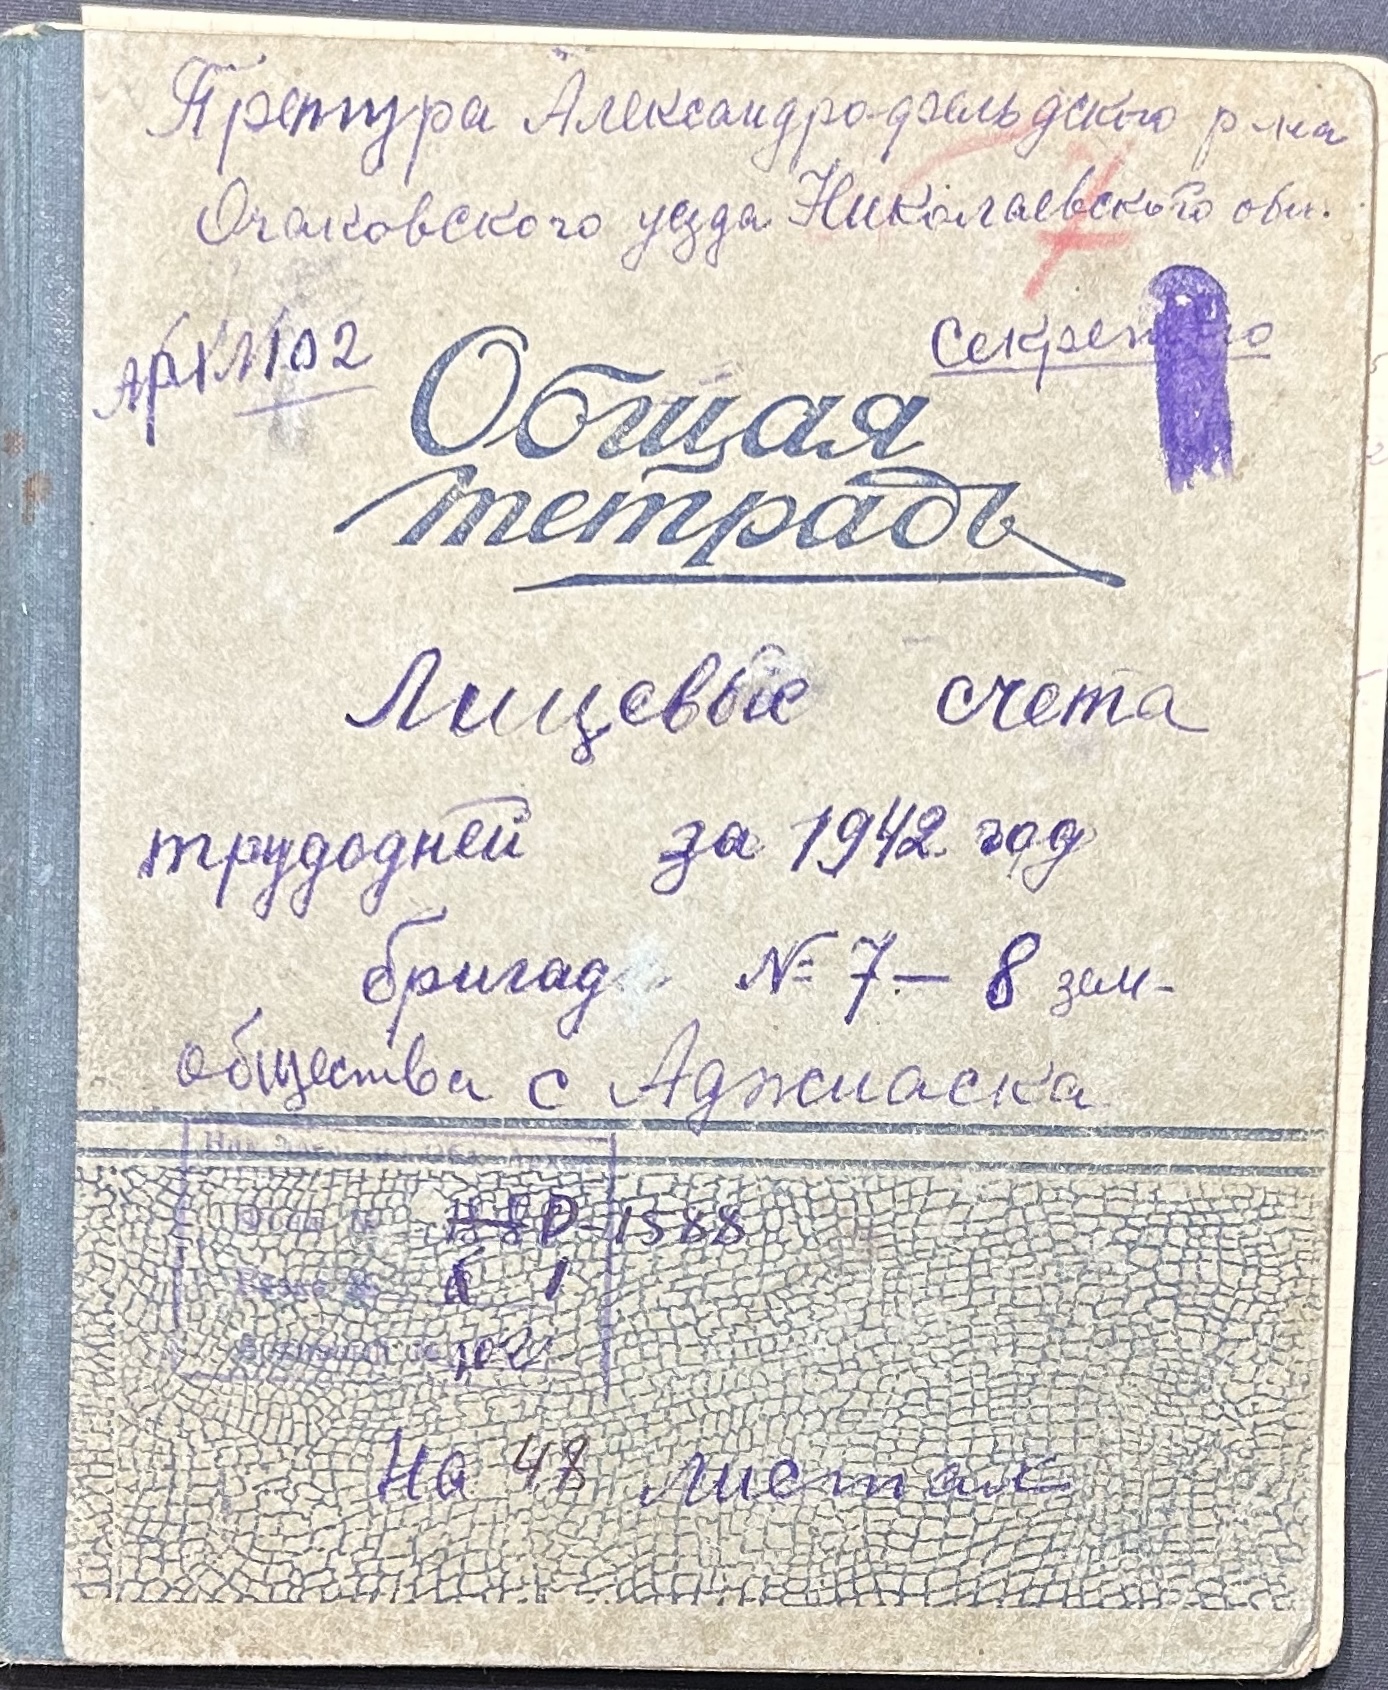 Претура Александро-дфельдского р-на
Очаковского уезда Николаевского обл.
Арх№102
Секретно
Общая
тетрадь
Лицевые счета
трудодней за 1942 год
бригад № 7 — 8 зем-
общества с Аджиаска
Р-1588
1
102
На 48 листах